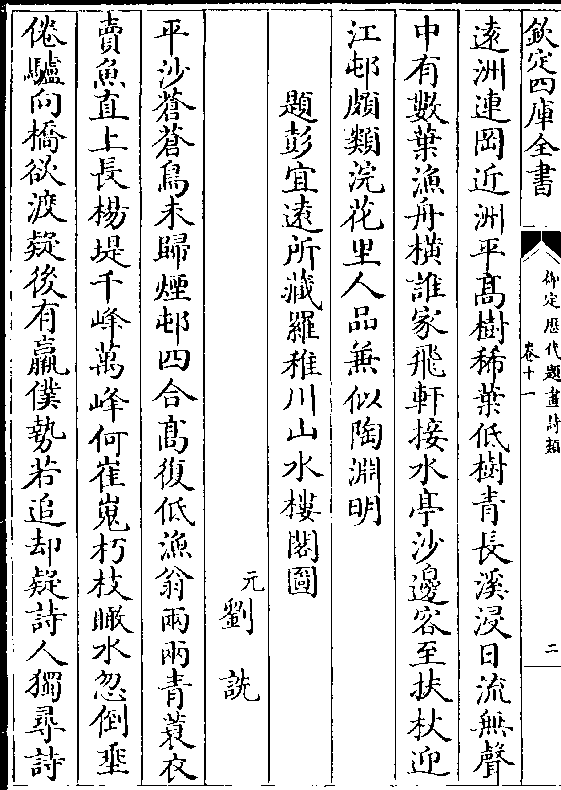 欽定四庫全書
御定歷代題畫詩類
卷十一
二
逺洲連岡近洲平髙樹稀葉低樹青長溪浸日流無聲
中有數葉漁舟横誰家飛軒接水亭沙邊客至扶杖迎
江邨頗類浣花里人品兼似陶淵明
題彭宜逺所藏羅稚川山水樓閣圖
元劉詵
平沙蒼蒼鳥未歸煙邨四合髙復低漁翁兩兩青蓑衣
賣魚直上長楊堤千峰萬峰何崔嵬朽枝瞰水忽倒垂
倦驢向橋欲渡疑後有羸僕勢若追却疑詩人獨尋詩